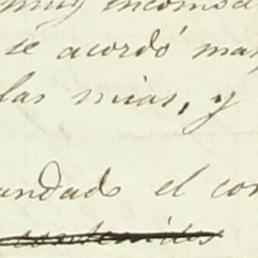 muy incomod
se acordó man
las mias, y
undado el con
contenidos